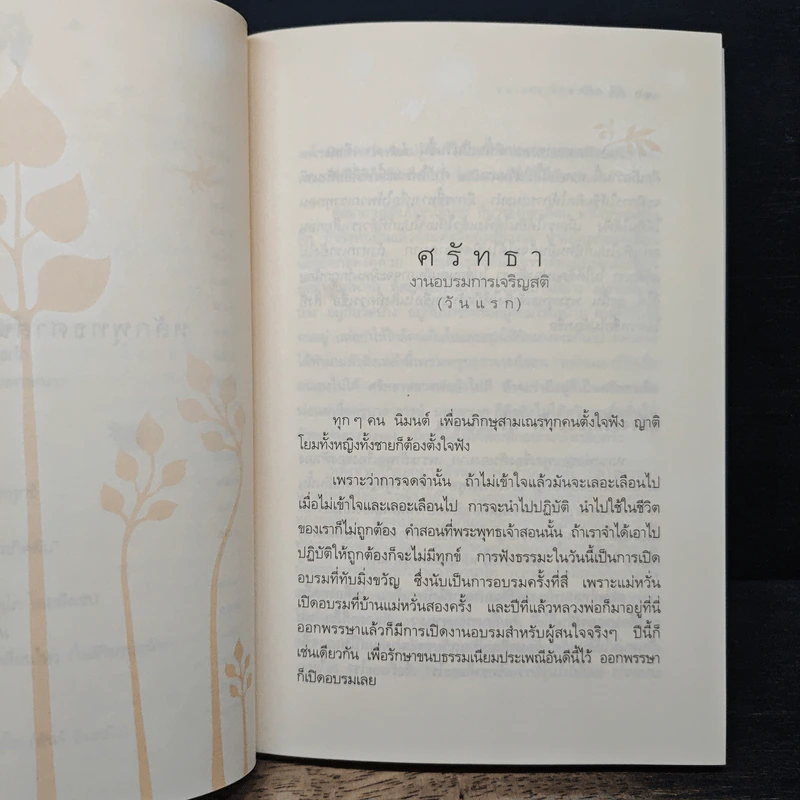 ศรัทธา
งานอบรมการเจริญสติ
(วันแรก)
ทุกๆคน นิมนต์ เพื่อนภิกษุสามเณรทุกคนตั้งใจฟัง ญาติ
โยมทั้งหญิงทั้งชายก็ต้องตั้งใจฟัง
เพราะว่าการจดจำนั้น ถ้าไม่เข้าใจแล้วมันจะเลอะเลือนไป
เมื่อไม่เข้าใจและเลอะเลือนไป การจะนำไปปฏิบัติ นำไปใช้ในชีวิต
ของเราก็ไม่ถูกต้อง คำสอนที่พระพุทธเจ้าสอนนั้น ถ้าเราจำได้เอาไป
ปฏิบัติให้ถูกต้องก็จะไม่มีทุกข์ การฟังธรรมะในวันนี้เป็นการเปิด
อบรมที่ทับมิ่งขวัญ ซึ่งนับเป็นการอบรมครั้งที่สี่ เพราะแม่หวั่น
เปิดอบรมที่บ้านแม่หวั่นสองครั้ง และปีที่แล้วหลวงพ่อก็มาอยู่ที่นี่
ออกพรรษาแล้วก็มีการเปิดงานอบรมสำหรับผู้สนใจจริงๆ ปีนี้ก็
เช่นเดียวกัน เพื่อรักษาขนบธรรมเนียมประเพณีอันดีนี้ไว้ ออกพรรษา
ก็เปิดอบรมเลย